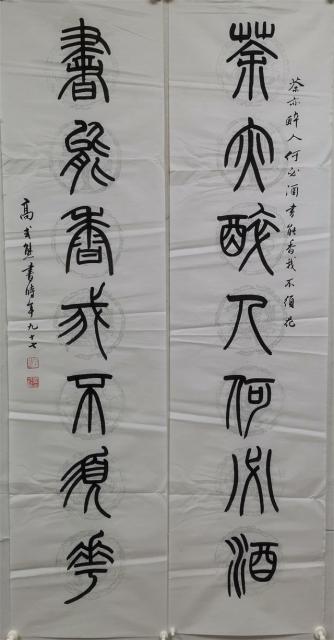 茶亦醉人何必酒書能香我不須花
茶亦醉人何必酒
書能香我不須花
高式熊書時年九十七